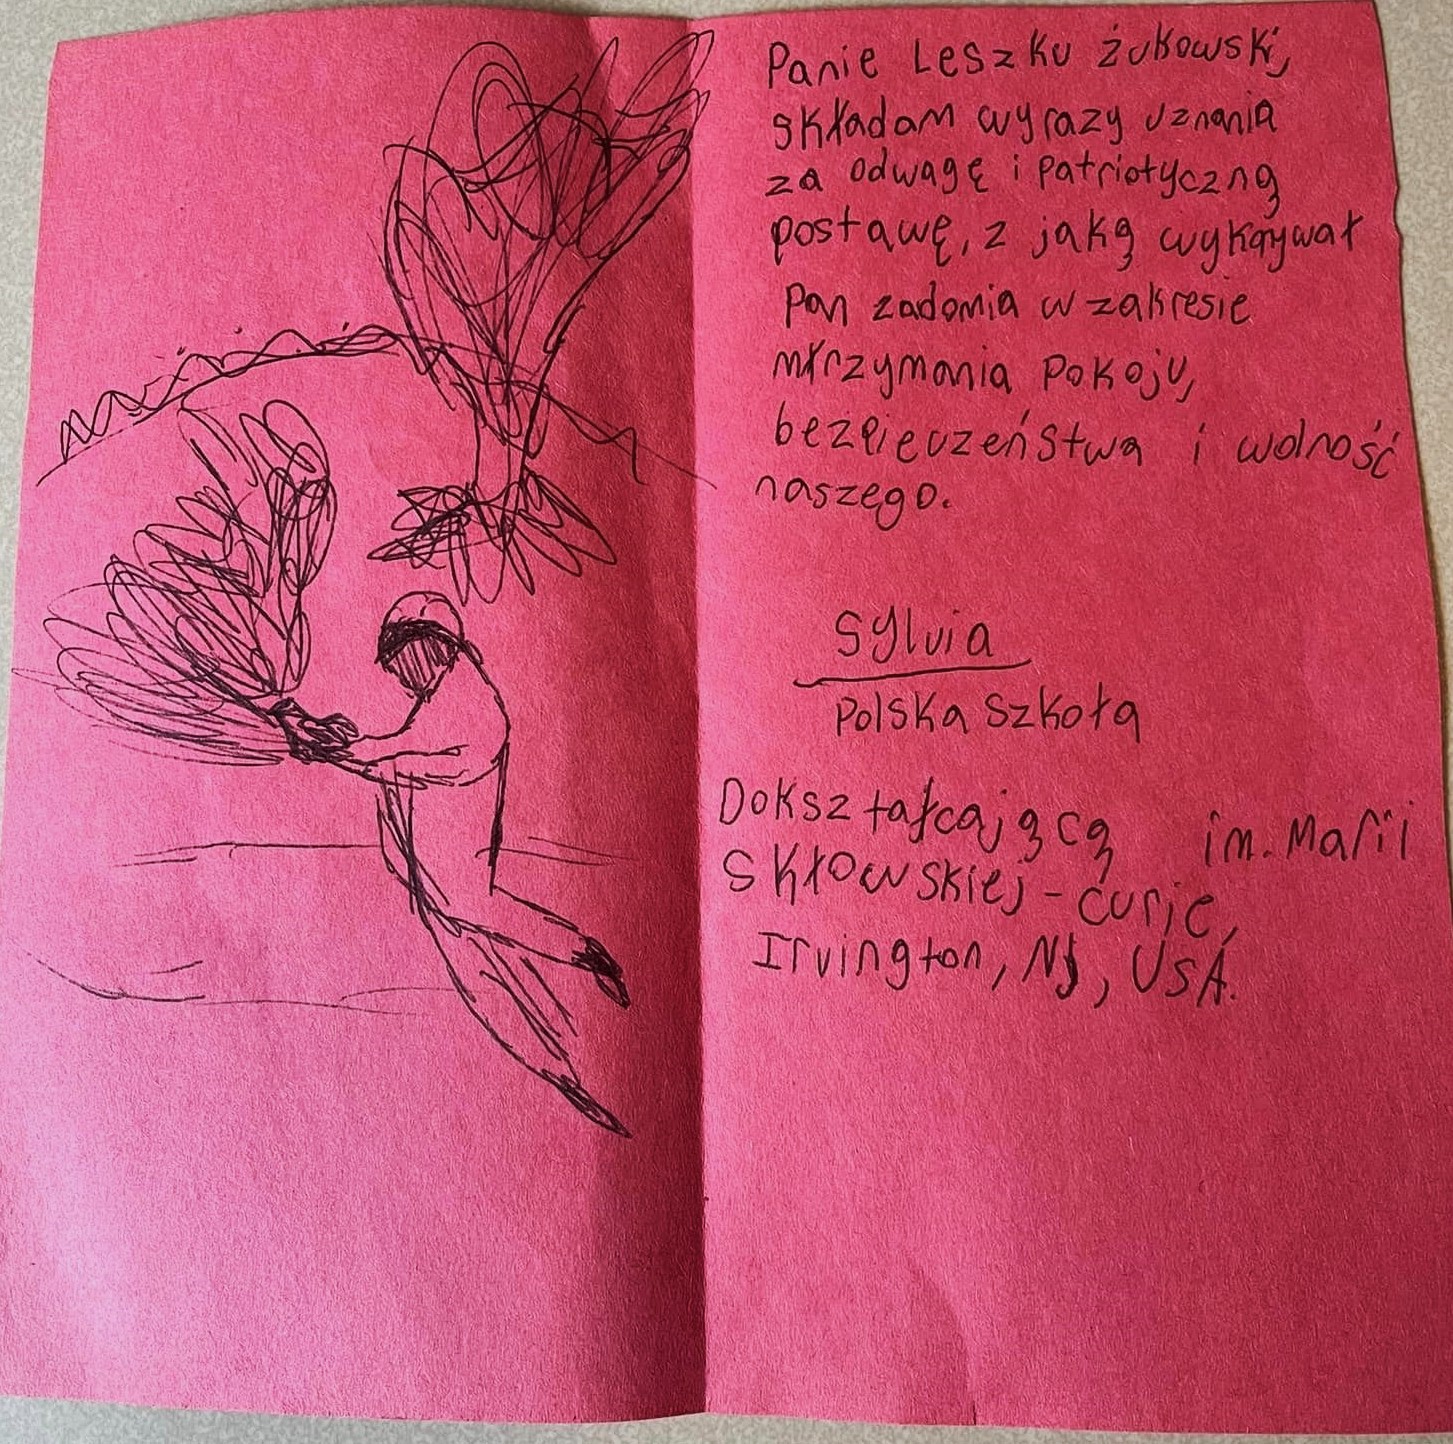 Panie Leszku Żukowski,
składam wyrazy uznania
za odwagę i patriotyczną
postawę, z jaką wykazywał
Pan zadomia w zakresie
mtrzymania pokoju,
bezpieczeństwa i wolność
naszego.
Sylvia
Polska Szkoła
Dokształcającą im. Marii
Skłowskiej-Curie,
Irvington, NJ, USA.